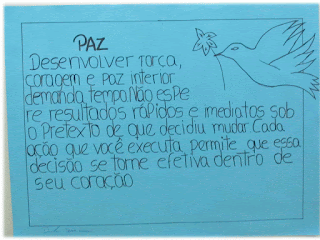 PAZ
Desenvolver força,
coragem e paz interior
demanda tempo. Não espe
re resultados rápidos e imediatos sob
o Pretexto de que decidiu mudar. Cada
ação que você executa permite que essa
decisão se torne efetiva dentro de
seu coração